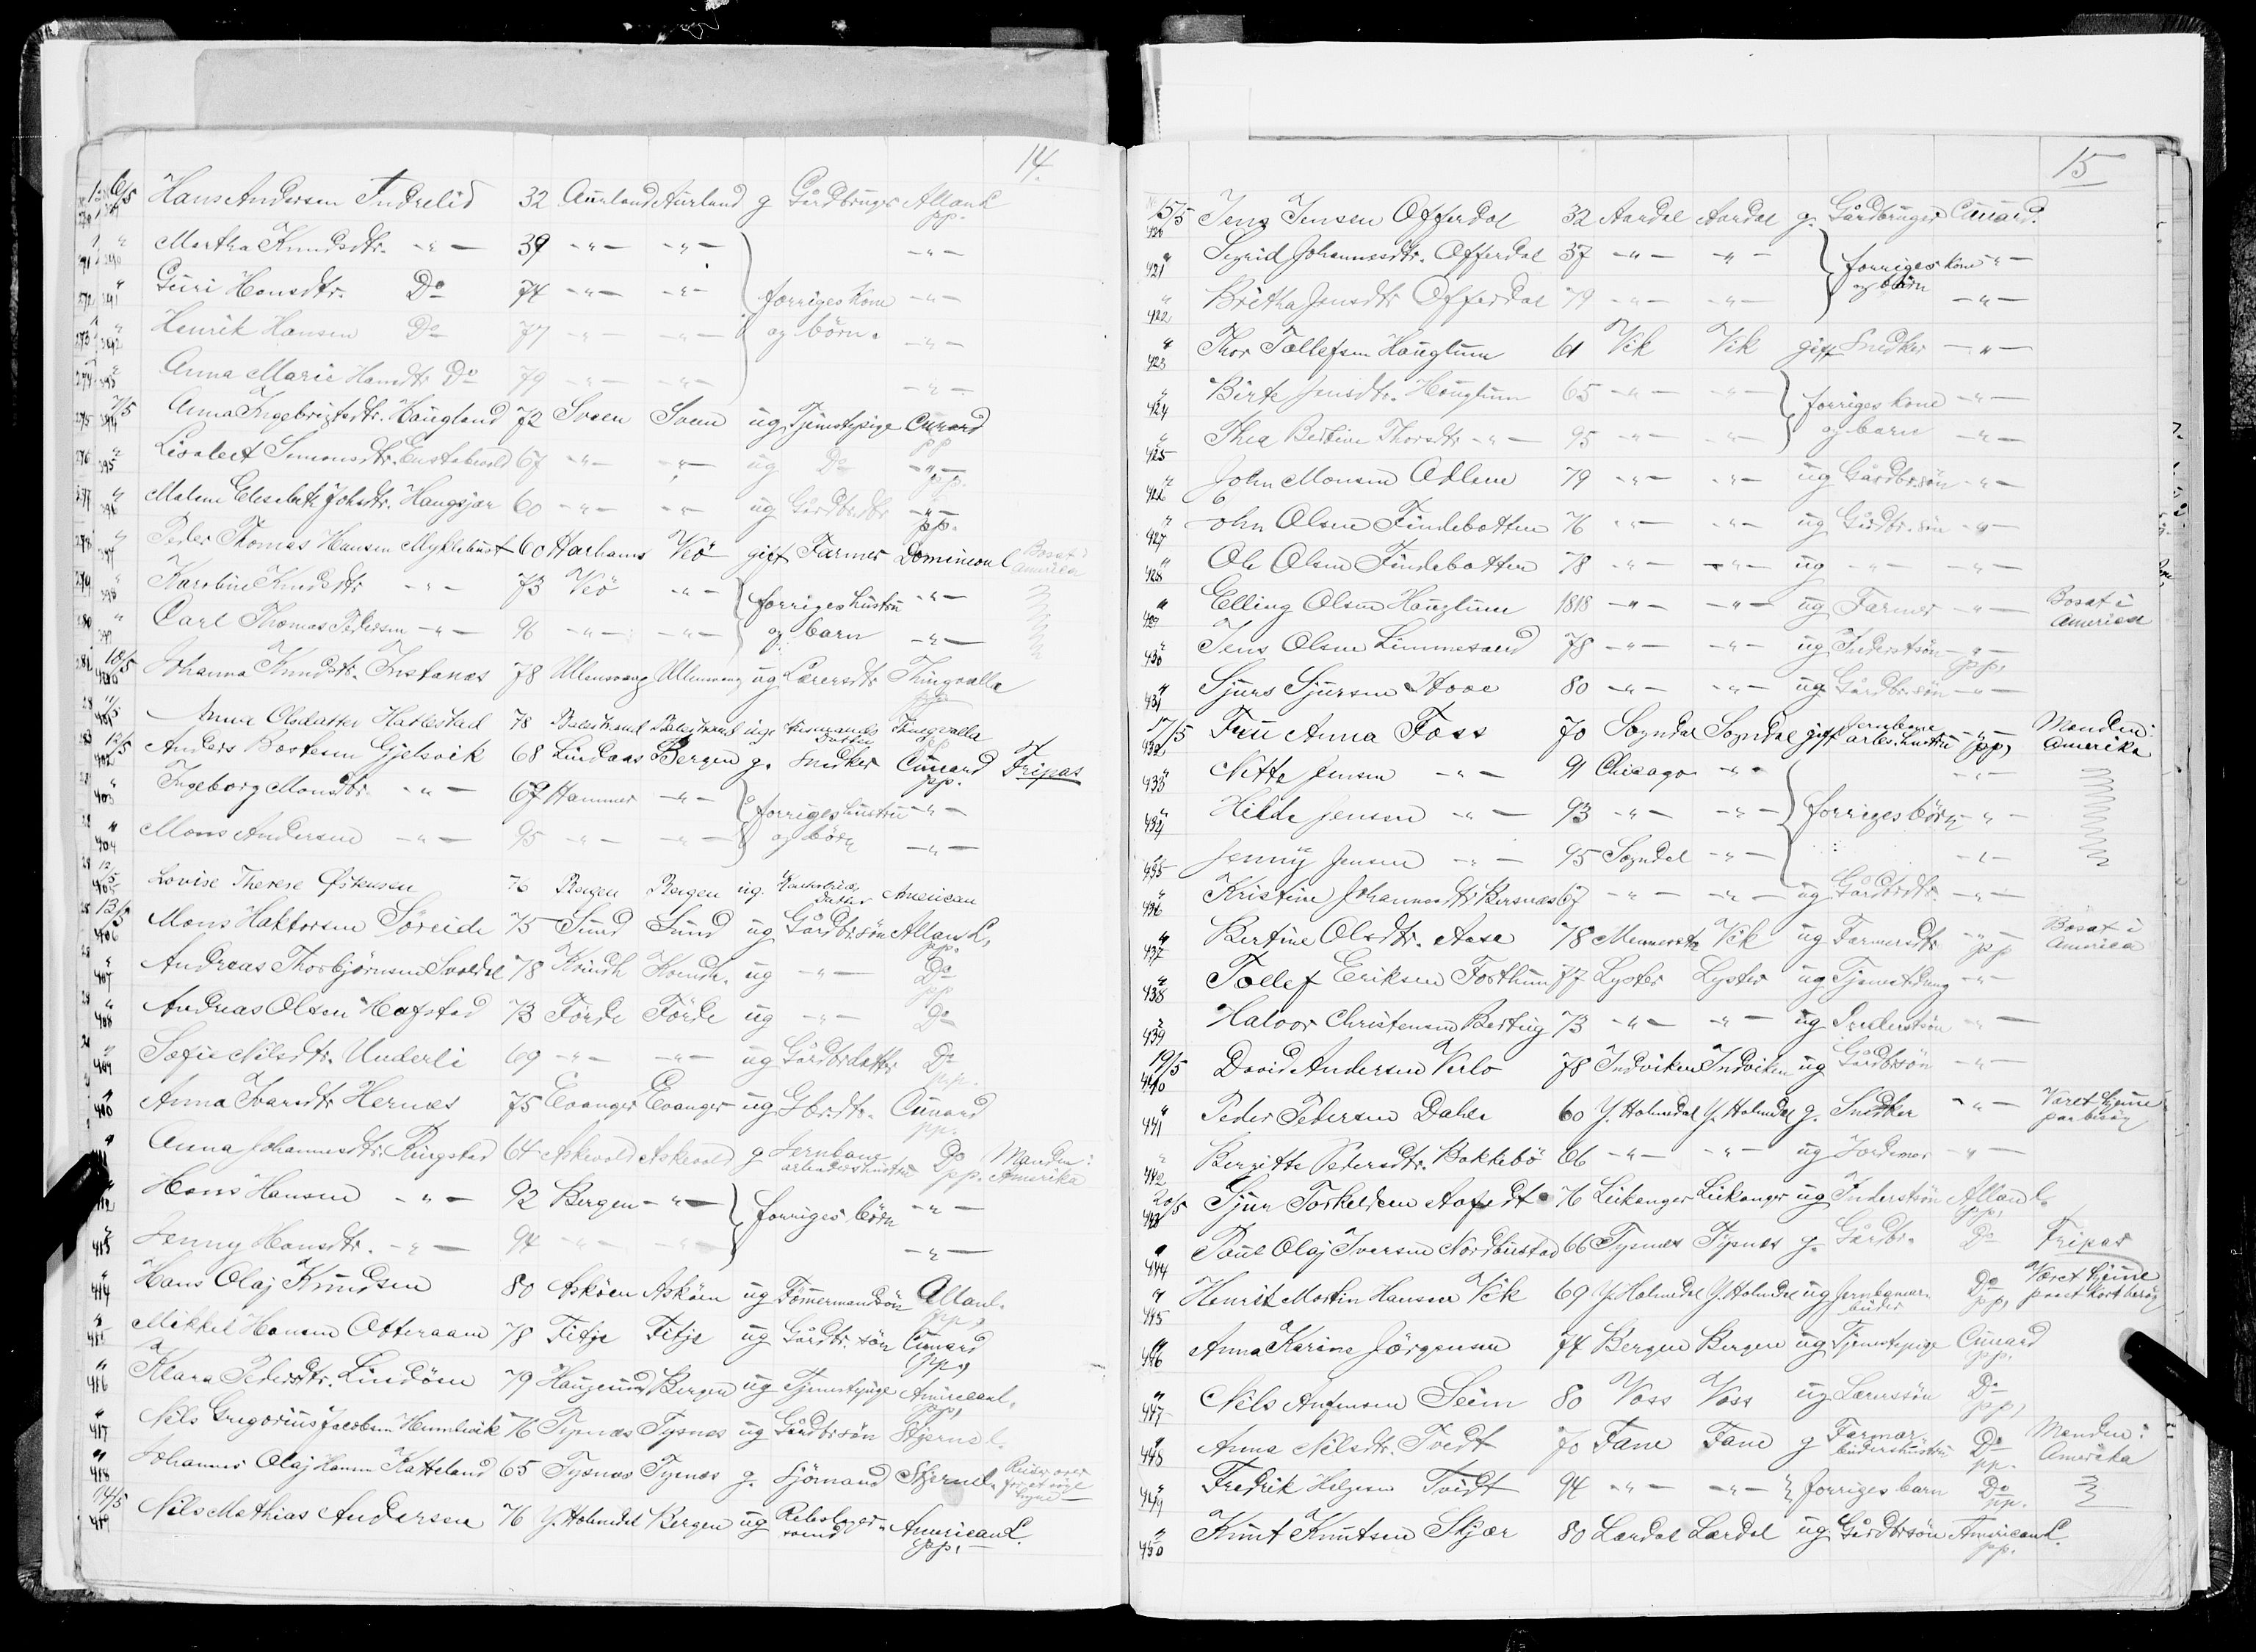 14.
6/5 Hans Andersen Indrelid 32 Aurland Aurland g Gårdbruger Allan L pp.
" Martha Knudsdtr. -"- 39 -"- -"- -"-
" Guri Hansdtr. Do 74 -"- -"- forriges kone -"-
" Henrik Hansen Do 77 -"- -"- og börn. -"-
" Anna Marie Hansdtr Do 79 -"- -"- -"-
7/5 Anna Ingebrigtsdtr. Haugland 72 Sveen Sveen ug Tjenestepige Cunard pp
" Lisabet Simonsdtr. 67 -"- -"- ug Do -"- pp.
" Malene Elisabeth Johsdtr. Haugsjær 60 -"- -"- ug Gårdbrdtr -"- pp.
" Peder Thomas Hansen Myklebust 60 Harhams Veö gift Farmer Dominion L Bosat i America
" Karoline Knudsdtr -"- 73 Veö -"- forriges hustru -"-
" Carl Thomas Pedersen -"- 96 -"- -"- og barn -"-
10/5 Johanna Knudsdtr. Instanæs 78 Ullensvang Ullensvang ug Lærersdtr Thingvalla pp.
11/5 Anna Olsdatter Hatlestad 78 Balestrand Balestrand ug Husmands Datter Thingvalla pp
12/5 Anders Bortesen Gjelsvik 68 Lindaas Bergen g. Snedker Cunard pp. Fripas
" Ingeborg Monsdtr. -"- 67 Hammer -"- forriges hustru -"-
" Mons Andersen -"- 95 -"- -"- og börn -"-
12/5 Lovise Therese Østensen 76 Bergen Bergen ug. Datter American
13/5 Mons Haktorsen Söreide 75 Sund Sund ug Gårdbr.sön Allan L, pp.
" Andreas Thorbjørnsen Svoldal 78 Kvindh Kvindh. ug -"- Do pp
" Andreas Olsen Hafstad 73 Förde Förde ug -"- Do
" Sofie Nilsdtr. Underli 69 -"- -"- ug Gårdbrdatter Do pp.
" Anna Ivarsdtr Hernæs 75 Evanger Evanger ug Gbr.dtr. Cunard pp.
" Anna Johannesdtr. Ringstad 64 Askevold Askevold g Jernbane arbeidershustru Do pp. Manden i Amerika
" Hans Hansen -"- 92 Bergen -"- forriges börn -"-
" Jenny Hansdtr. -"- 94 -"- -"- -"-
" Hans Olaj Knudsen 80 Asköen Asköen ug Tömmermandsön Allan L. pp,
" Mikkel Hansen Otteraaen 78 Fitje Fitje ug Gårdbr. sön Cunard pp.,
" Klara Pedersdtr. Lindöen 79 Haugesund Bergen ug Tjenestepige American L. pp,
" Nils Gregorius Jacobsen Humlevik 76 Tysnæs Tysnæs ug Gårdbrsön Stjerne L.
" Johannes Olaj Hansen Katteland 65 Tysnæs Tysnæs g. Sjömand Stjerne L. Reiser over for at
14/5 Nils Mathias Andersen 76 Y. Holmedal Bergen ug Rebslager svend American L. pp.
15
15/5 Jens Jensen Offerdal 32 Aardal Aardal g. Gårdbruger Cunard.
420
421 " Sigrid Johannesdtr. Offerdal 37 -"- -"- forriges kone -"-
422 " Britha Jensdtr Offerdal 79 -"- -"- og börn -"-
423 " Thor Tollefsen Hauglum 61 Vik Vik gift Snedker -"-
424 " Birte Jensdtr. Hauglum 65 -"- -"- forriges kone -"-
425 " Thea Bertine Thorsdtr -"- 95 -"- -"- og barn -"-
426 " John Monsen Odlem 79 -"- -"- ug Gårdbr.sön -"-
427 " John Olsen Findebotten 76 -"- -"- ug Gårdbr.sön -"-
428 " Ole Olsen Findebotten 78 -"- -"- ug -"- -"-
429 " Elling Olsen Hauglum 1818 -"- -"- ug Farmer -"- Bosat i America
430 " Jens Olsen Limmesand 78 -"- -"- ug Inderstsön -"- pp,
431 " Sjurs Sjursen Hove 80 -"- -"- ug Gårdbr.sön -"-
17/5 432 Fru Anna Foss 70 Sogndal Sogndal gift Jernbane arb.s.hustru -"- pp, Manden i Amerika
433 " Nitta Jensen -"- 91 Chicago -"- -"-
434 " Hilda Jensen -"- 93 -"- -"- forriges börn -"-
435 " Jenny Jensen -"- 95 Sogndal -"- -"-
436 " Kristine Johannesdtr Bersnæs 67 -"- -"- ug Gårdbrdtr. -"-
437 " Bertine Olsdtr. Aase 78 Vik ug Farmersdtr -"- pp Bosat i America
438 " Tollef Eriksen Forthun 77 Lyster Lyster ug Tjenestedreng -"-
439 " Halvor Christensen Bertug 73 -"- -"- ug Inderstsön -"-
19/5 440 David Andersen Verlo 78 Indviken Indviken ug Gårdbrsön -"-
441 " Peder Pedersen Dahle 60 Y. Holmedal Y. Holmedal g. Snedker -"- Været hjemme paa besög
442 " Bergitte Pedersdtr. Bakkebö 66 -"- -"- ug Jordemor -"-
20/5 443 Sjur Torkeldsen Aafedt 76 Leikanger Leikanger ug Inderstsön Allan L. pp,
444 " Paul Olaj Iversen Nordbustad 66 Tysnæs Tysnæs g. Gårdbr. Do Fripas
445 " Henrik Martin Hansen Vik 69 Y. Holmedal Y. Holmedal ug Jernbanear-beider Do pp, Været hjemme paa et kort besög
446 " Anna Karine Jörgensen 74 Bergen Bergen ug Tjenestepige Cunard pp.
447 " Nils Anfinsen Seim 80 Voss Voss ug Lærersön Do pp,
448 " Anna Nilsdtr. Tvedt 70 Fane Fane g Farmar-beidershustru Do pp. Manden i Amerika
449 " Fredrik Helgesen Tvedt 94 -"- -"- forriges barn Do pp.
450 " Knut Knutsen Skjær 80 Lærdal Lærdal ug. Gårdbrsön American L. pp.